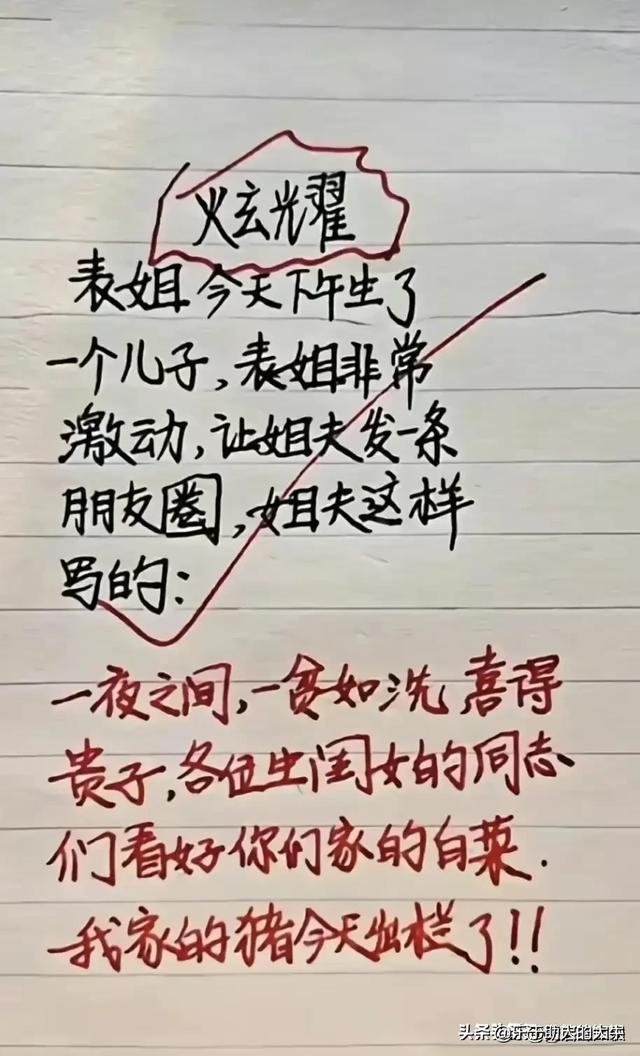 炫耀
表姐今天下午生了
一个儿子,表姐非常
激动,让姐夫发一条
朋友圈,姐夫这样
写的:
一夜之间,一贫如洗,喜得
贵子,各位生闺女的同志
们看好你们家的白菜.
我家的猪今天出栏了!!
头条